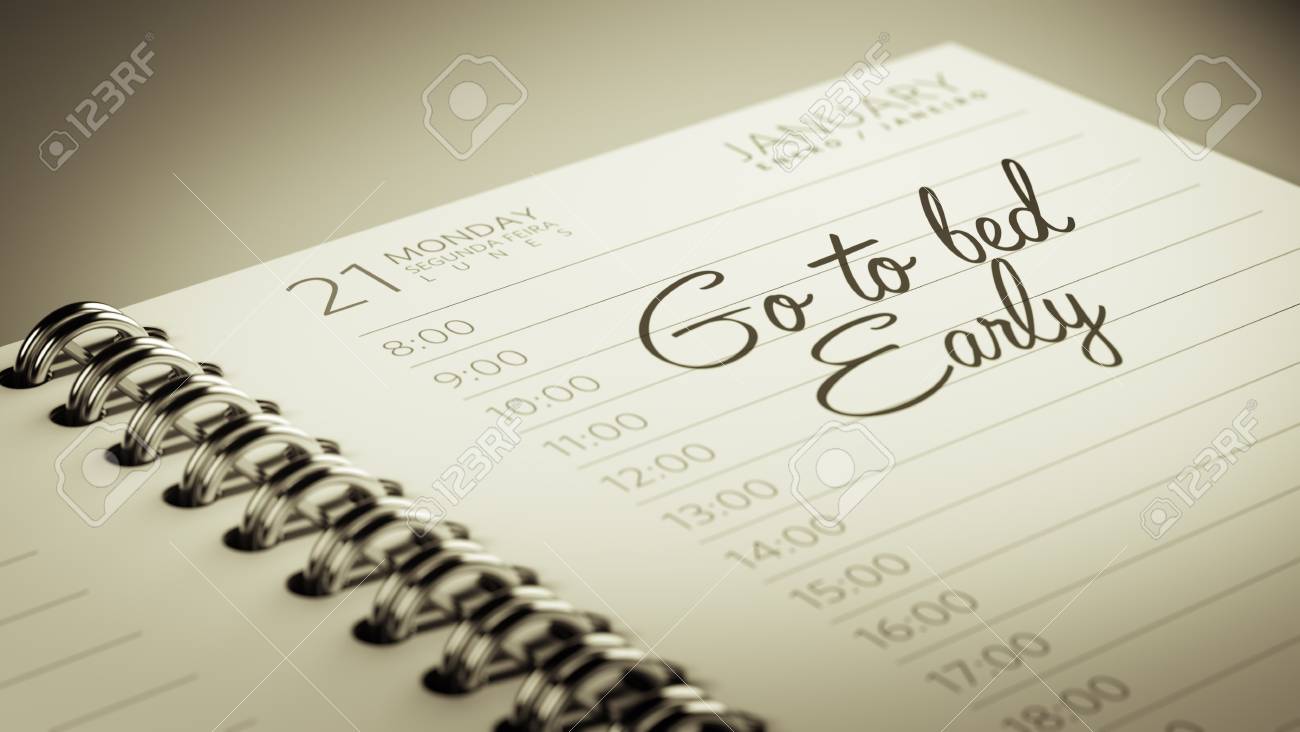 JANUARY
ENERO / JANEIRO
21 MONDAY
SEGUNDA FEIRA
LUNES
Go to bed
Early
8:00
9:00
10:00
11:00
12:00
13:00
14:00
15:00
16:00
17:00
18:00
123RF
123RF
123RF
123RF
123RF